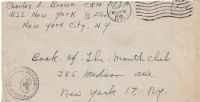 Charles E. Brown
USS New York
New York City, N.Y.
Book-of-The-Month Club
385 Madison Ave.
New York 17. N.Y.